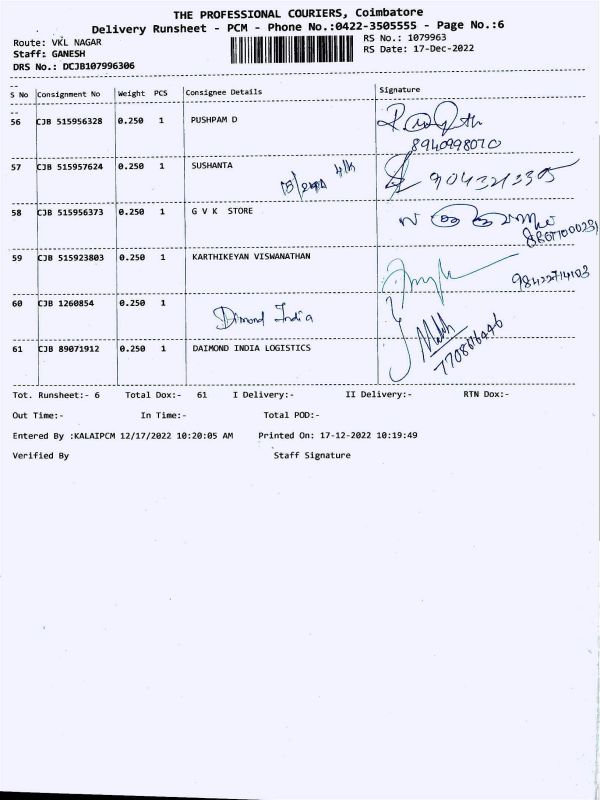 THE PROFESSIONAL COURIERS, Coimbatore
Delivery Runsheet - PCM - Phone No.:0422-3505555 - Page No.:6
Route: VKL NAGAR
RS No.: 1079963
Staff: GANESH
RS Date: 17-Dec-2022
DRS No.: DCJB107996306
S No Consignment No Weight PCS Consignee Details Signature
56 CJB 515956328 0.250 1 PUSHPAM D
8940998070
57 CJB 515957624 0.250 1 SUSHANTA
9043213395
58 CJB 515956373 0.250 1 G V K STORE
59 CJB 515923803 0.250 1 KARTHIKEYAN VISWANATHAN
60 CJB 1260854 0.250 1
Dimond India
61 CJB 89071912 0.250 1 DAIMOND INDIA LOGISTICS
Tot. Runsheet:- 6 Total Dox:- 61 I Delivery:- II Delivery:- RTN Dox:-
Out Time:- In Time:- Total POD:-
Entered By :KALAIPCM 12/17/2022 10:20:05 AM Printed On: 17-12-2022 10:19:49
Verified By Staff Signature